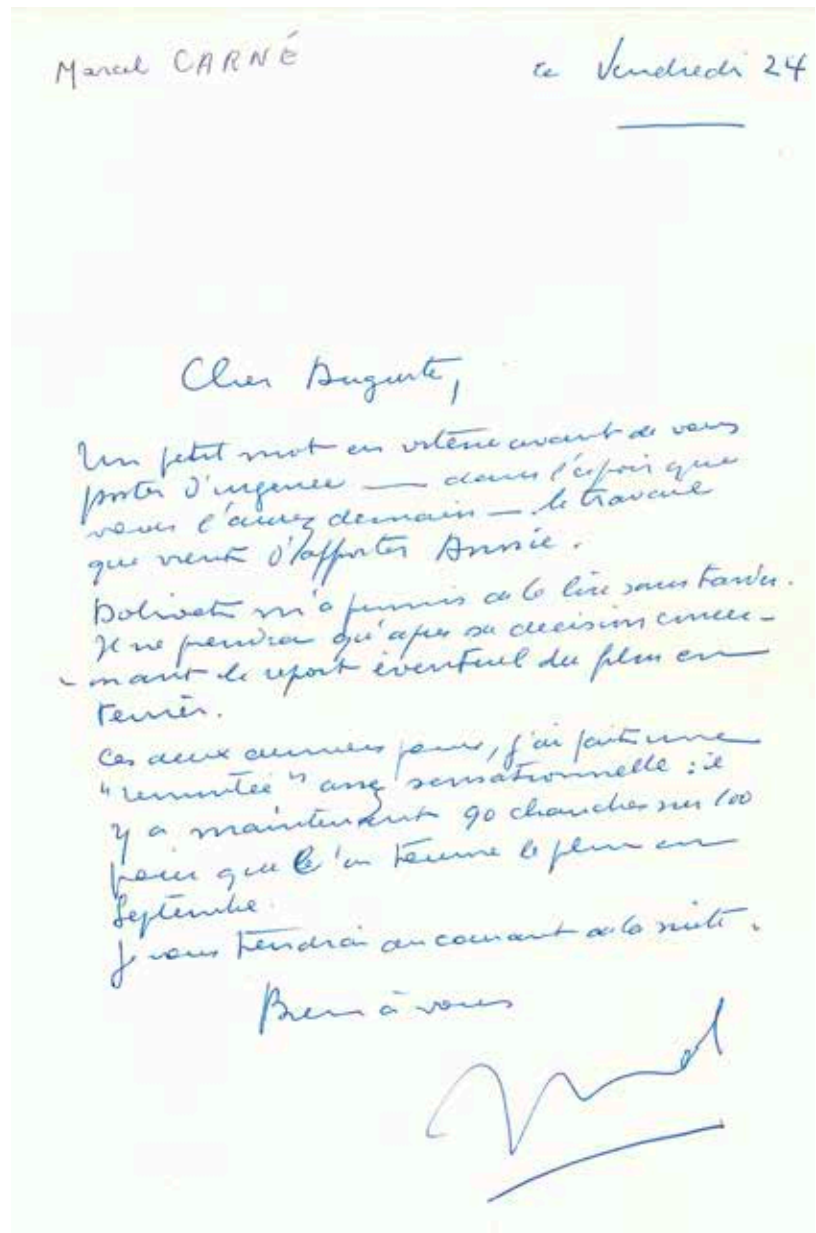 Marcel CARNÉ
le Vendredi 24
Cher Auguste,
Un petit mot en vitesse avant de vous
poster d'urgence — dans l'espoir que
vous l'aurez demain — le travail
que vient d'apporter Annie.
m'a promis de le lire sans tarder.
Il ne prendra qu'après sa décision concer-
- nant le report éventuel du film en
février.
Ces deux derniers jours, j'ai fait une
"remontée" assez sensationnelle : il
y a maintenant 90 chanches sur 100
pour que l'on tourne le film en
Septembre.
Je vous tiendrai au courant de la suite.
Bien à vous